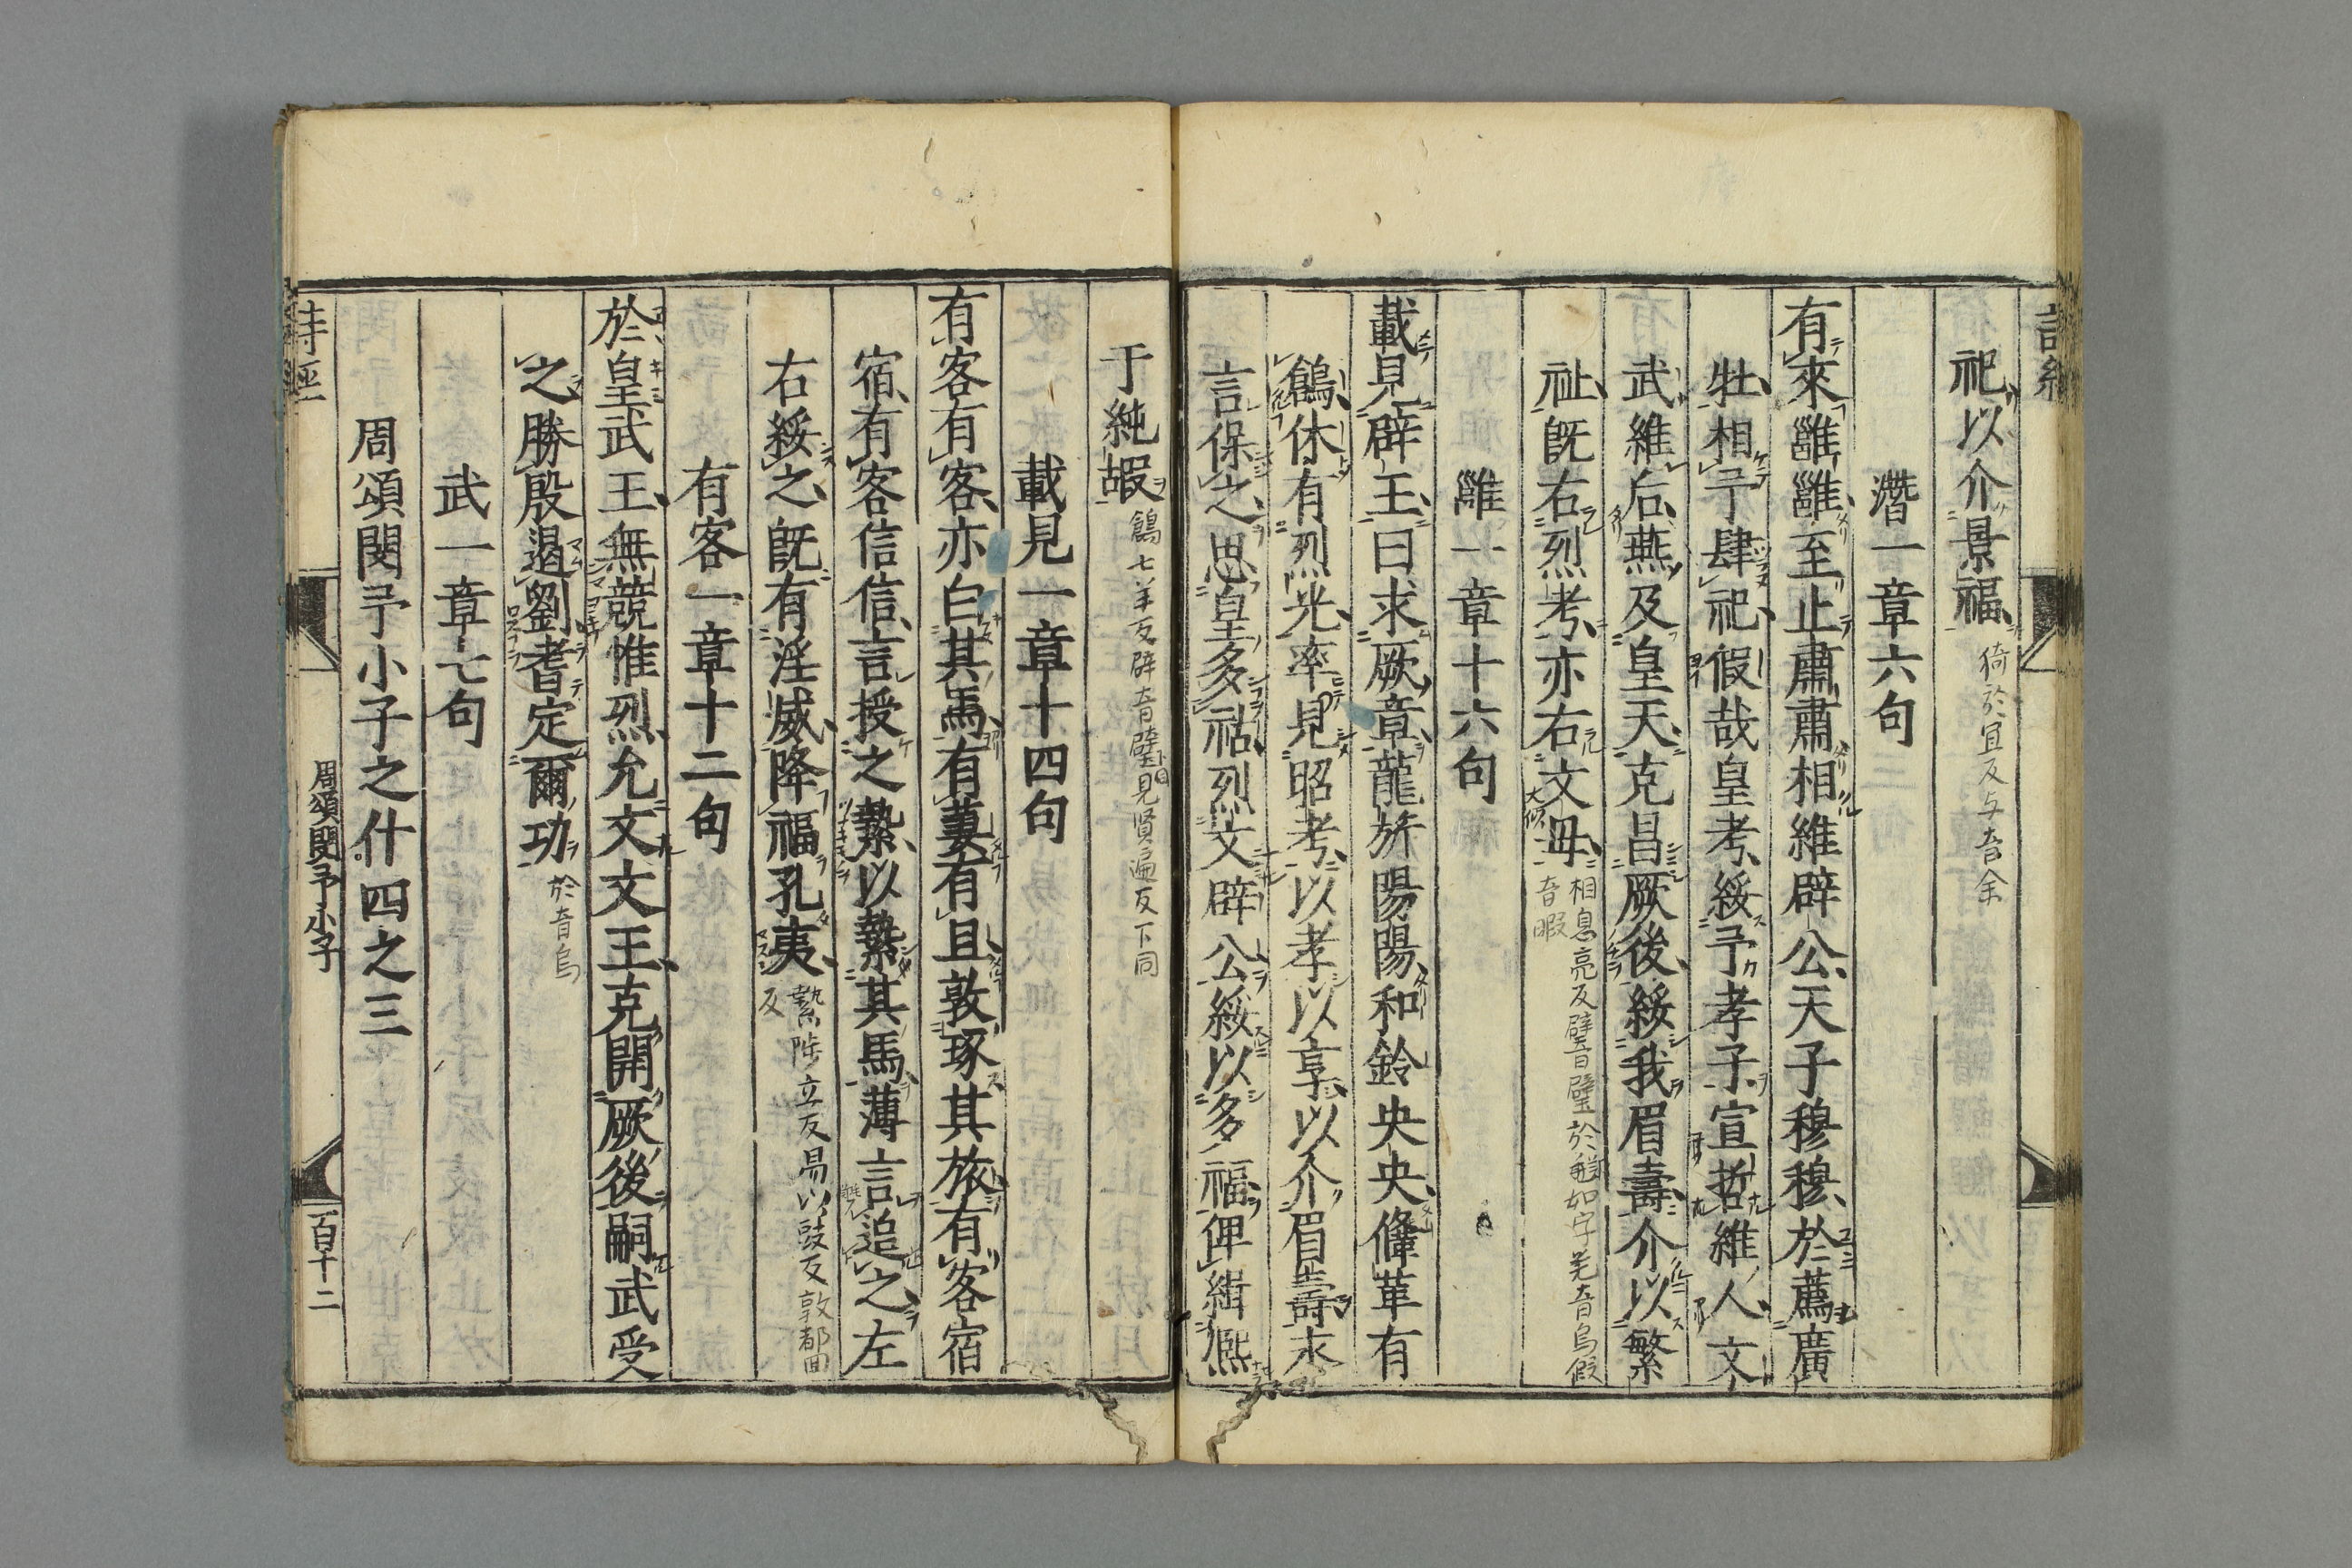 祀以介景福 猗於宜反与音余
潛一章六句
有來雝雝至止肅肅相維辟公天子穆穆於薦廣
牡相予肆祀假哉皇考綏予孝子宣哲維人文
武維后燕及皇天克昌厥後綏我眉壽介以繁
祉旣右烈考亦右文母 相息亮反辟音璧於 如字 音烏假音暇
雝一章十六句
載見辟王曰求厥章龍旂陽陽和鈴央央鞗革有
鶬休有烈光率見昭考以孝以享以介眉壽永
言保之思皇多祜烈文辟公綏以多福俾緝熙
于純嘏 鶬七羊反辟音璧見賢遍反下同
載見一章十四句
有客有客亦白其馬有萋有且敦琢其旅有客宿
宿有客信信言授之縶以縶其馬薄言追之左
右綏之旣有淫威降福孔夷 縶陟立反易以豉反敦都回反
有客一章十二句
於皇武王無競惟烈允文文王克開厥後嗣武受
之勝殷遏劉耆定爾功 於音烏
武一章七句
周頌閔予小子之什四之三
詩經
周頌閔予小子
百十二